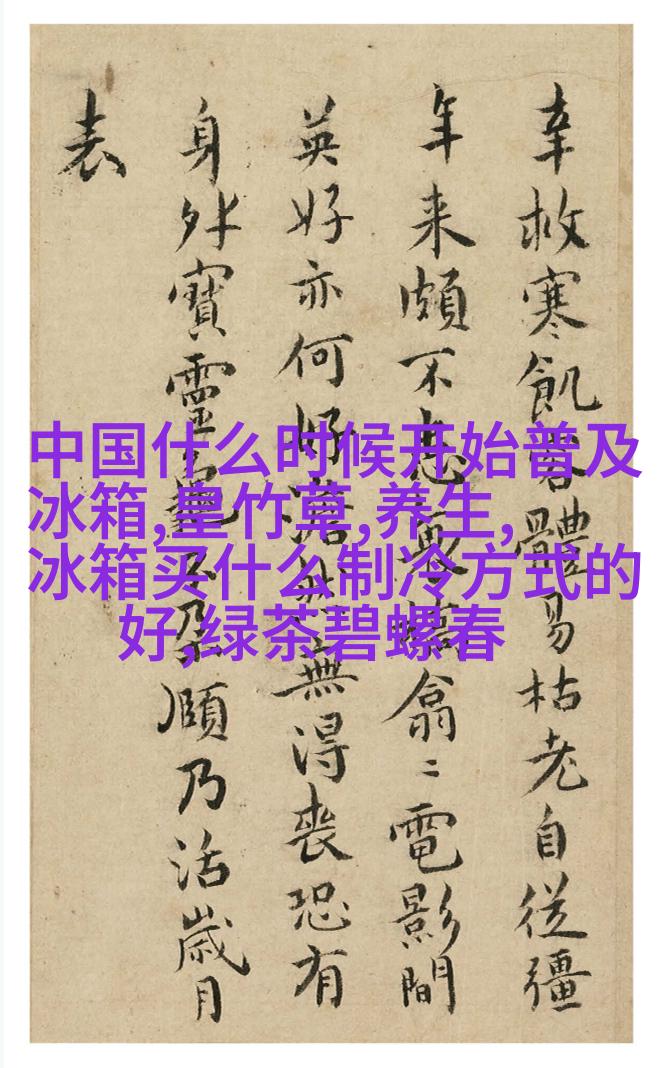 幸救寒飢器體易枯老自從彊
年来頗不惡夏蟪翕二電影間
英好亦何好澹然無得喪恐有
身外寶靈龜不朶頤乃活歲月
表
中国什么时候开始普及
冰箱,皇竹草,养生,
冰箱买什么制冷方式的
好,绿茶碧螺春